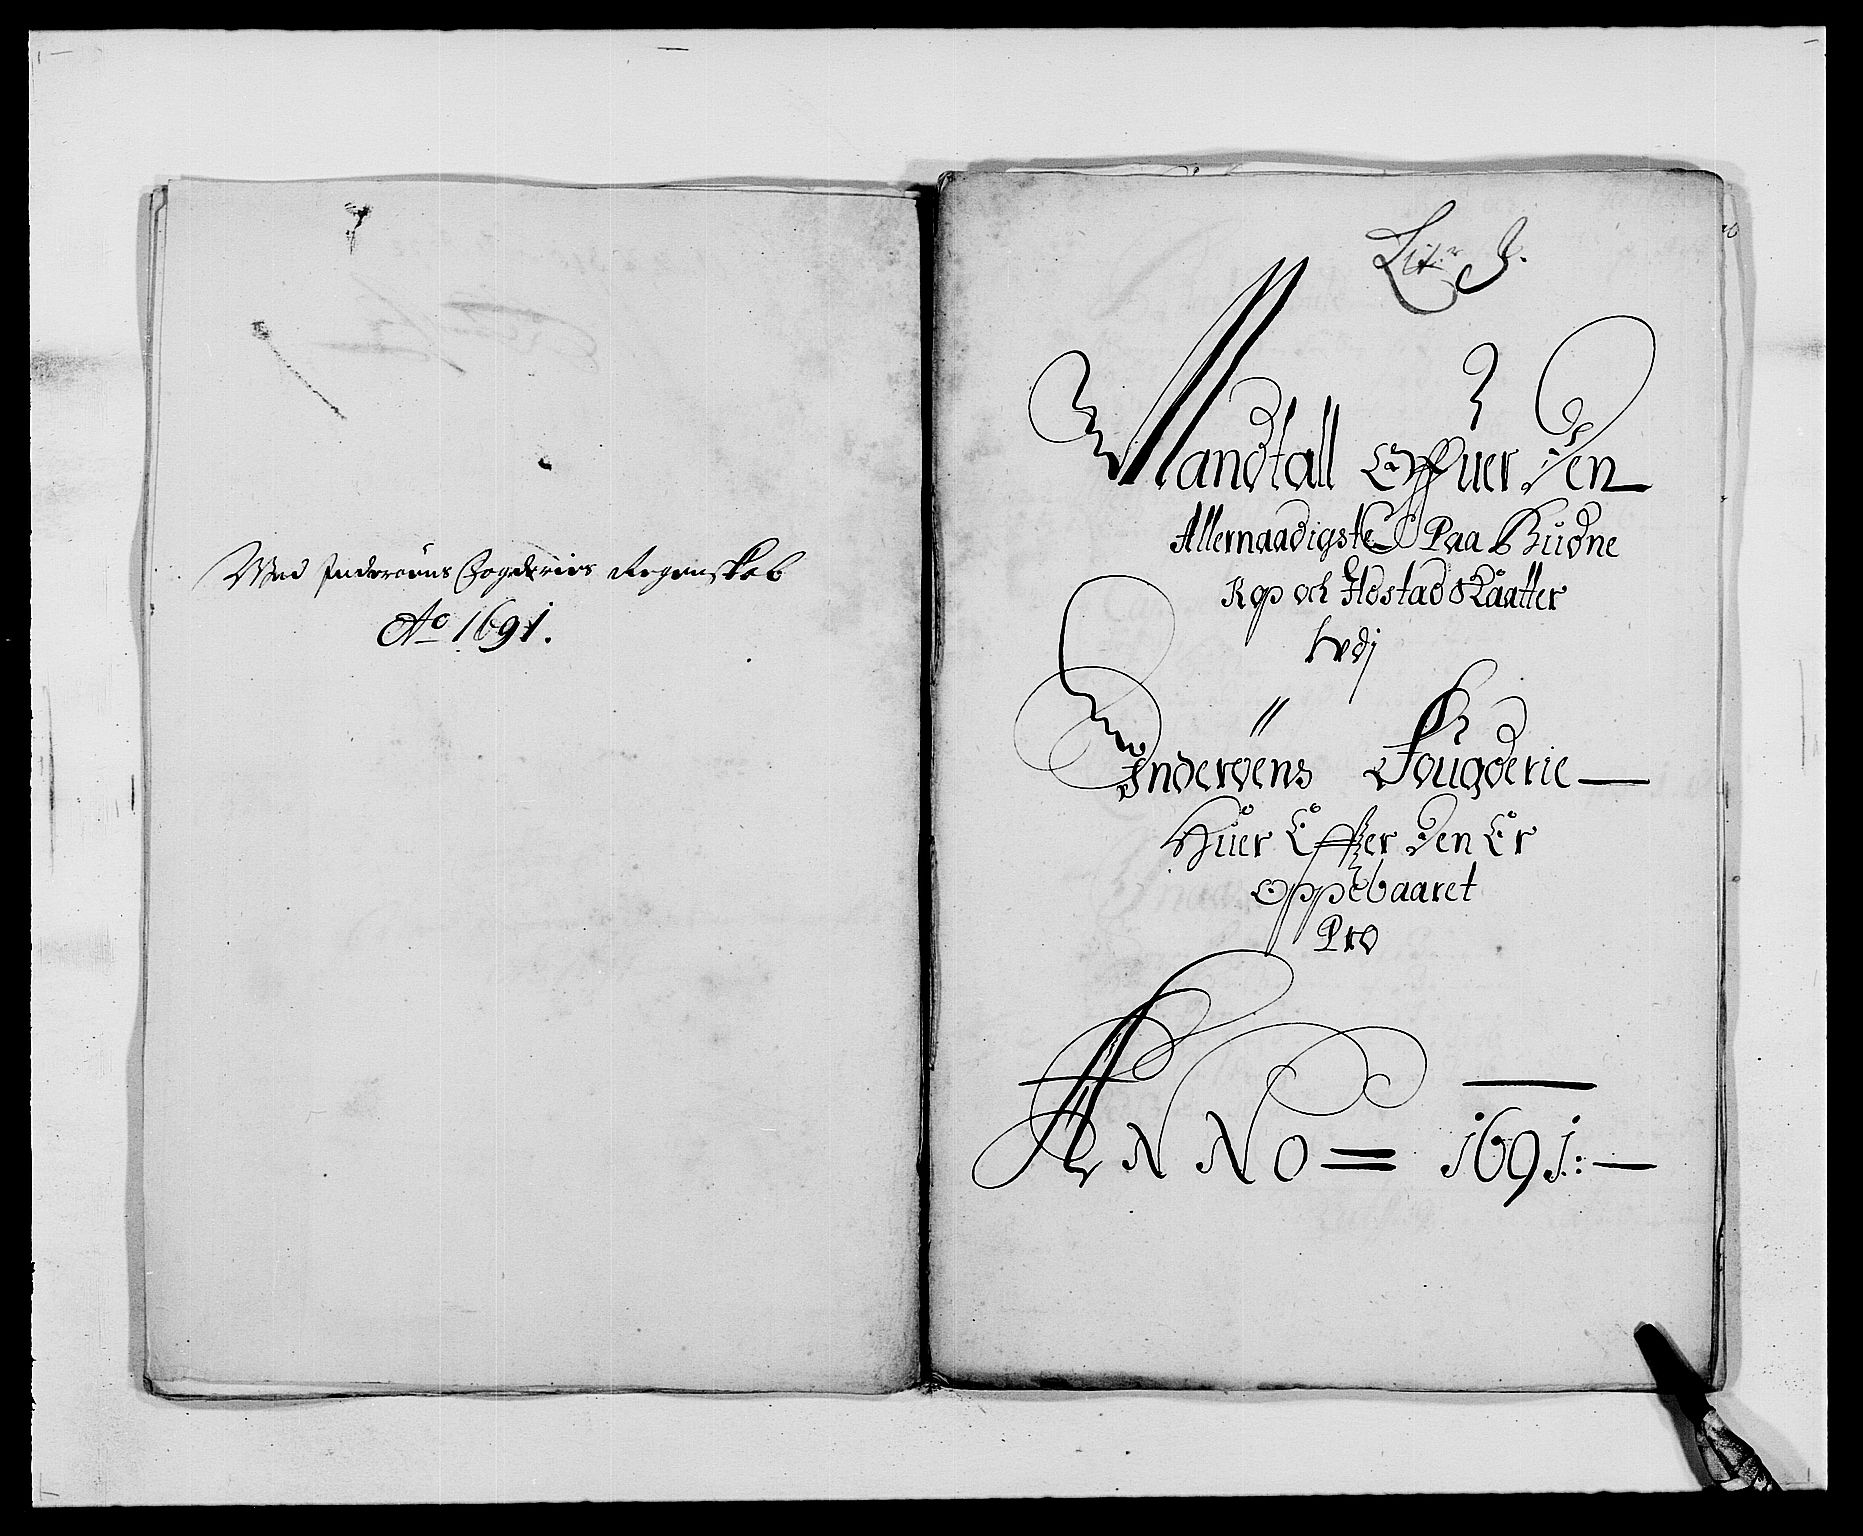 Med Inderøens Fogderies Regenskab
Ao 1691.
Lit: J.
Mandtall Offuer Den
Allernaadigste Paa Budne
Rop och Ildstad Skaatter
Udj
Inderøens Fougderie —
Huer Effter Den Er
Oppebaaret
Pro
ANNO = 1691: —